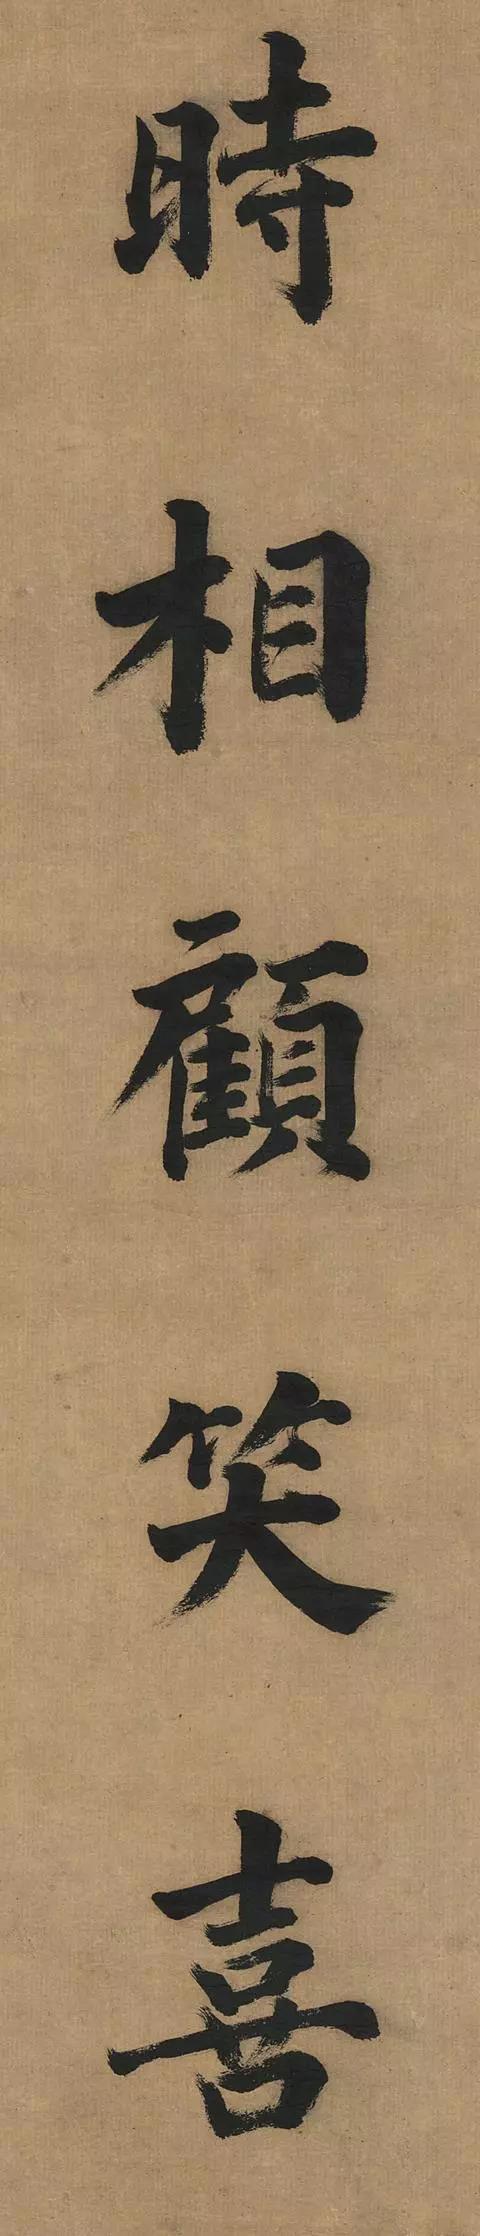 時相顧笑喜